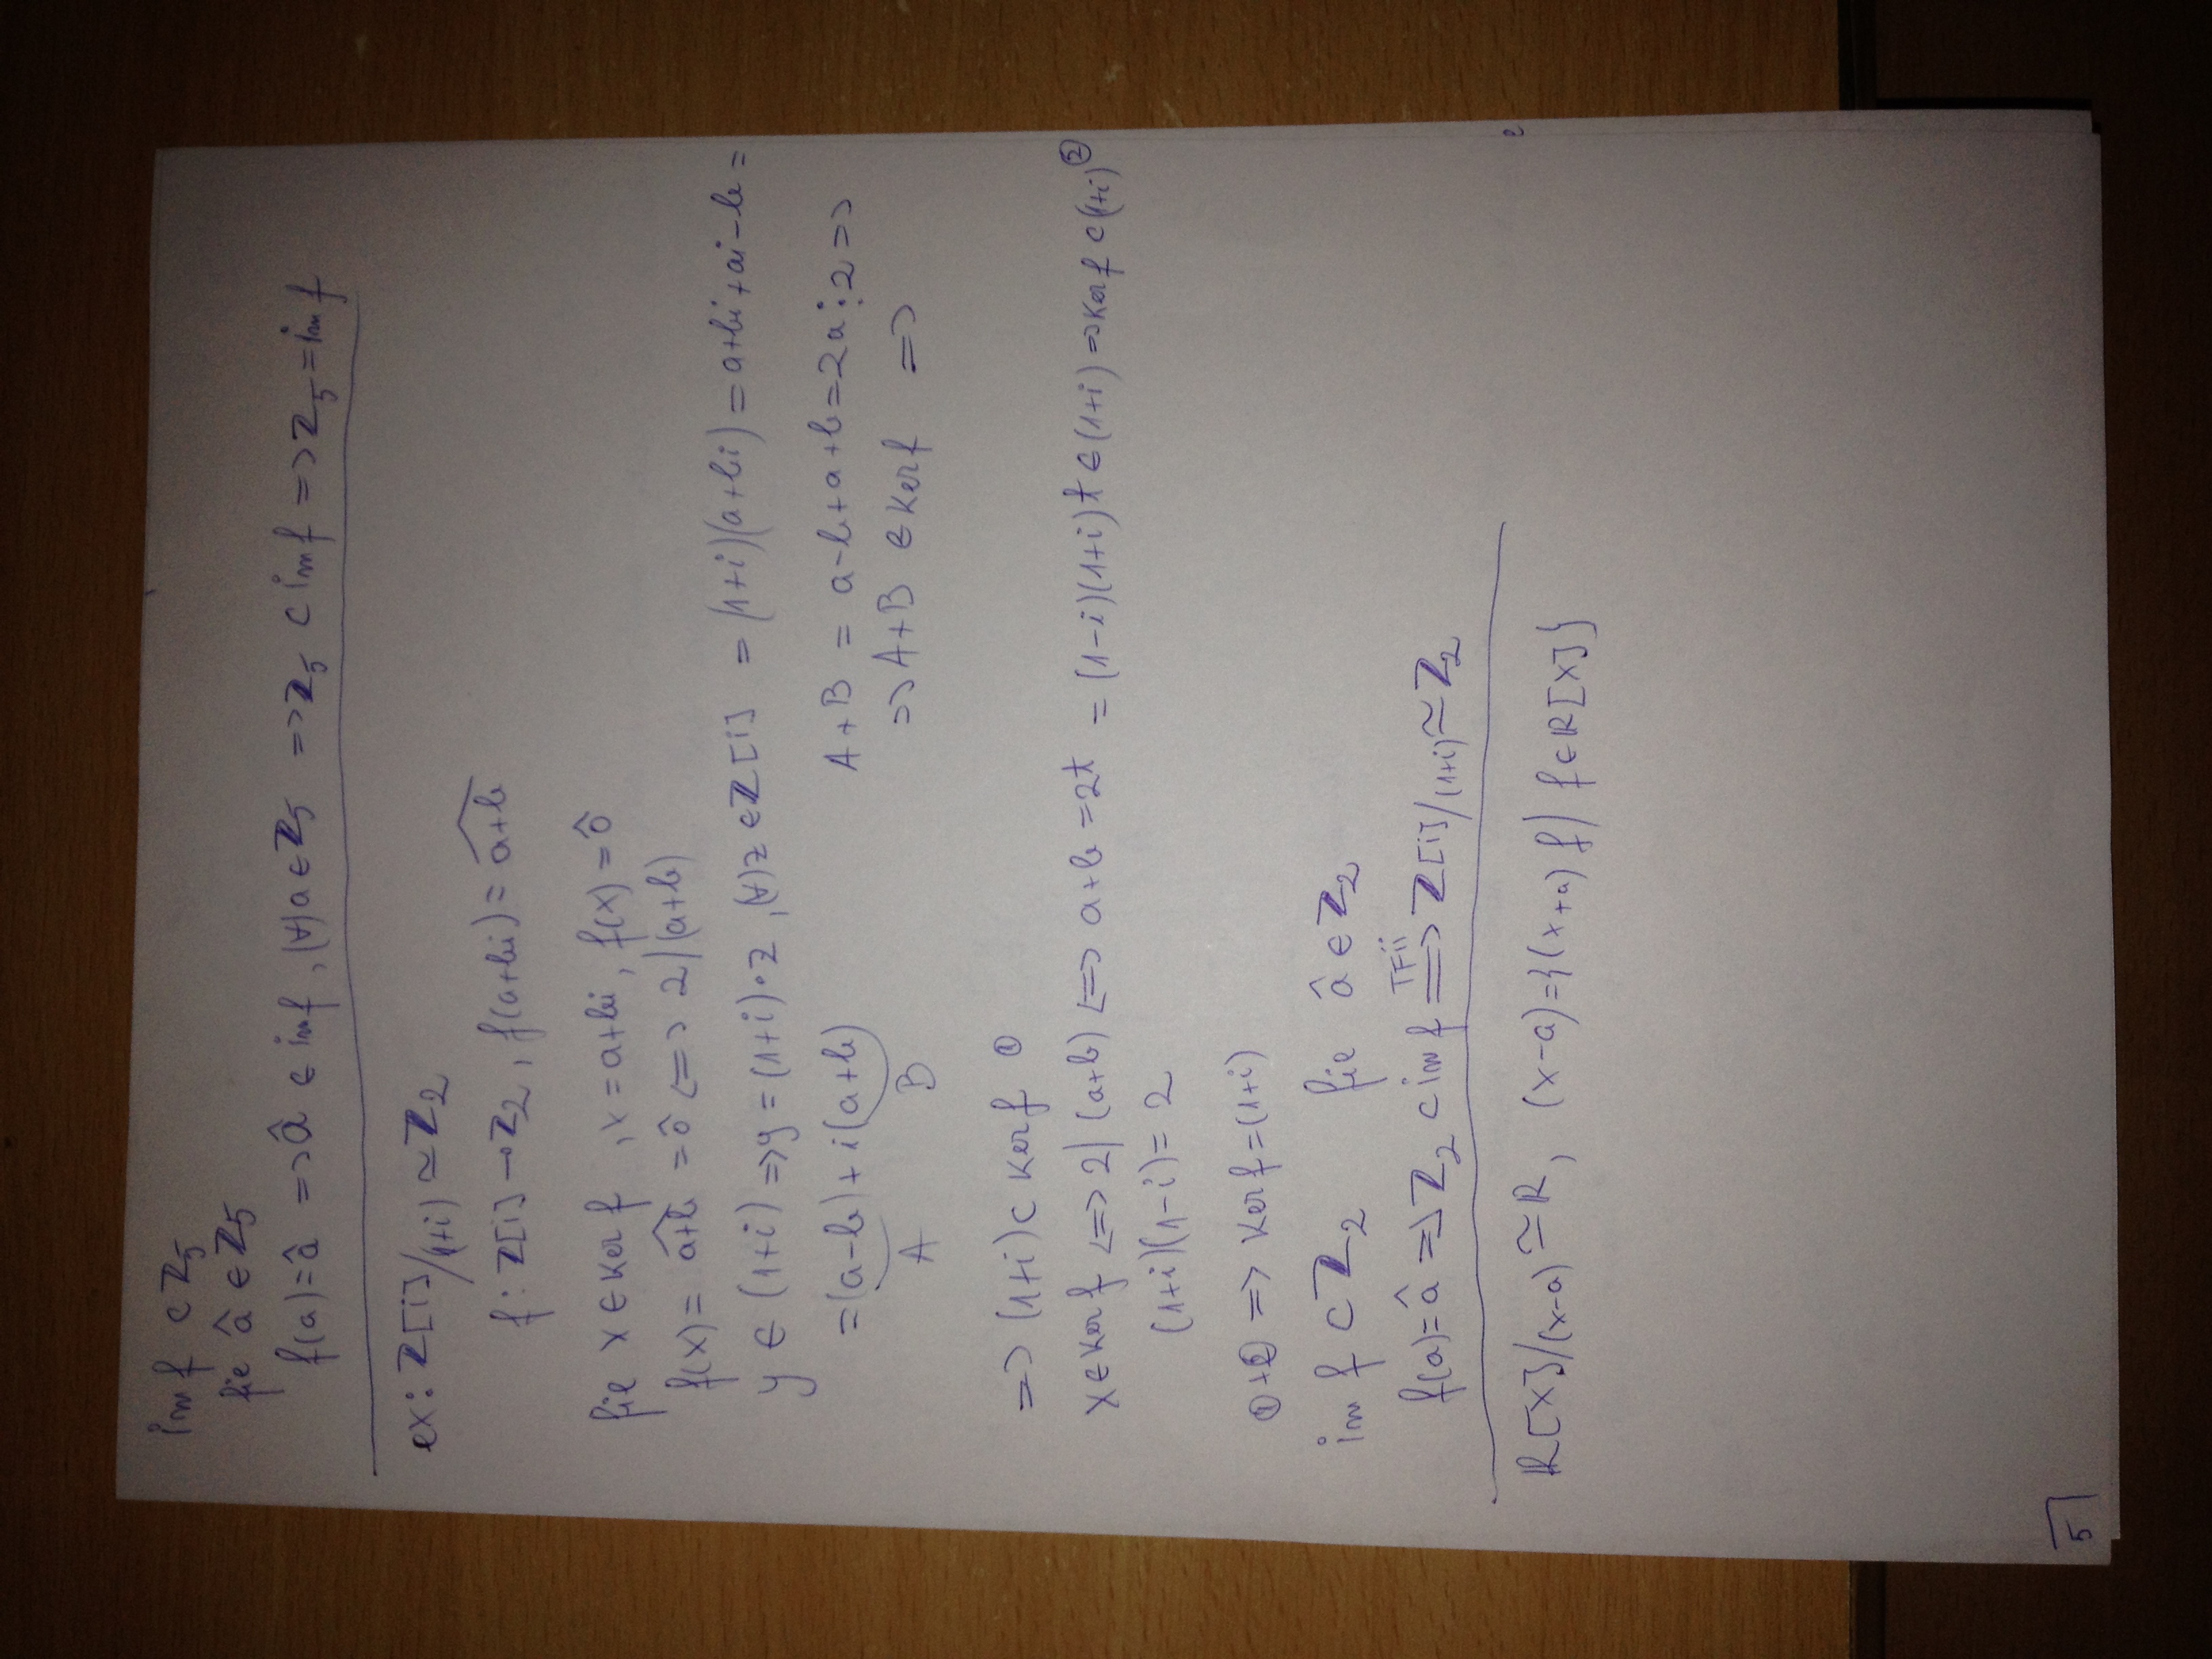 im f ⊂ ℤ₅
fie â ∈ ℤ₅
f(a) = â => â ∈ im f, (∀) a ∈ ℤ₅ => ℤ₅ ⊂ im f => ℤ₅ = im f
ex: ℤ[i]/(1+i) ≃ ℤ₂
f: ℤ[i] → ℤ₂, f(a+bi) = \widehat{a+b}
fie x ∈ Ker f, x = a+bi, f(x) = ô
f(x) = \widehat{a+b} = ô <=> 2 | (a+b)
y ∈ (1+i) => y = (1+i)·z, (∀) z ∈ ℤ[i] = (1+i)(a+bi) = a+bi+ai-b =
= (a-b) + i(a+b) A+B = a-b+a+b = 2a ⋮ 2 =>
A B => A+B ∈ Ker f =>
=> (1+i) ⊂ Ker f ①
x ∈ Ker f <=> 2 | (a+b) <=> a+b = 2t = (1-i)(1+i)t ∈ (1+i) => Ker f ⊂ (1+i) ②
(1+i)(1-i) = 2
①+② => Ker f = (1+i)
im f ⊂ ℤ₂ fie â ∈ ℤ₂
f(a) = â => ℤ₂ ⊂ im f =TFii=> ℤ[i]/(1+i) ≃ ℤ₂
ℝ[X]/(x-a) ≃ ℝ, (x-a) = {(x+a) f | f ∈ ℝ[X]}
5